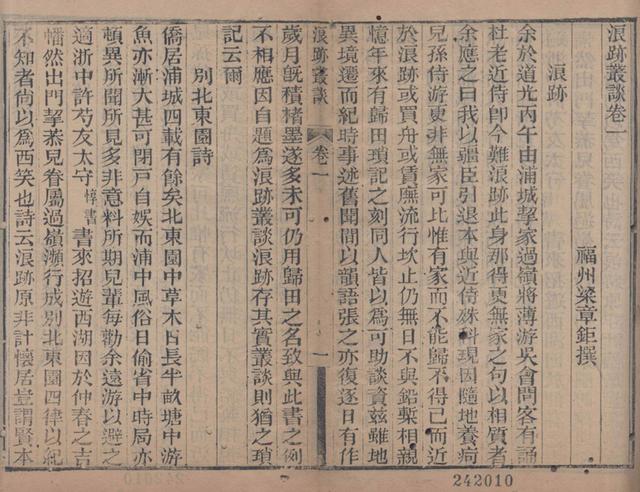 浪跡叢談卷一
福州梁章鉅撰
浪跡
余於道光丙午由浦城挈家過嶺將薄游吳會問客有誦
杜老近侍卽今難浪跡此身那得更無家之句以相質者
余應之曰我以疆臣引退本與近侍殊科現因隨地養痾
兒孫侍游更非無家可比惟有家而不能歸不得已而近
於浪跡或買舟或賃廡流行坎止仍無日不與鉛槧相親
憶年來有歸田瑣記之刻同人皆以爲可助談資茲雖地
異境遷而紀時事述舊聞間以韻語張之亦復逐日有作
浪跡叢談
卷一
一
歲月旣積楮墨遂多未可仍用歸田之名致與此書之例
不相應因自題爲浪跡叢談浪跡存其實叢談則猶之瑣
記云爾
別北東園詩
僑居浦城四載有餘矣北東園中草木日長半畝塘中游
魚亦漸大甚可閉戶自娛而浦中風俗日偷省中時局亦
頓異所聞所見多非意料所期兒輩每勸余遠游以避之
適浙中許芍友太守惇書書來招遊西湖因於仲春之吉
幡然出門挈忝兒眷屬過嶺瀕行成別北東園四律以紀
不知者尙以爲西笑也詩云浪跡原非計懷居豈謂賢本
242010